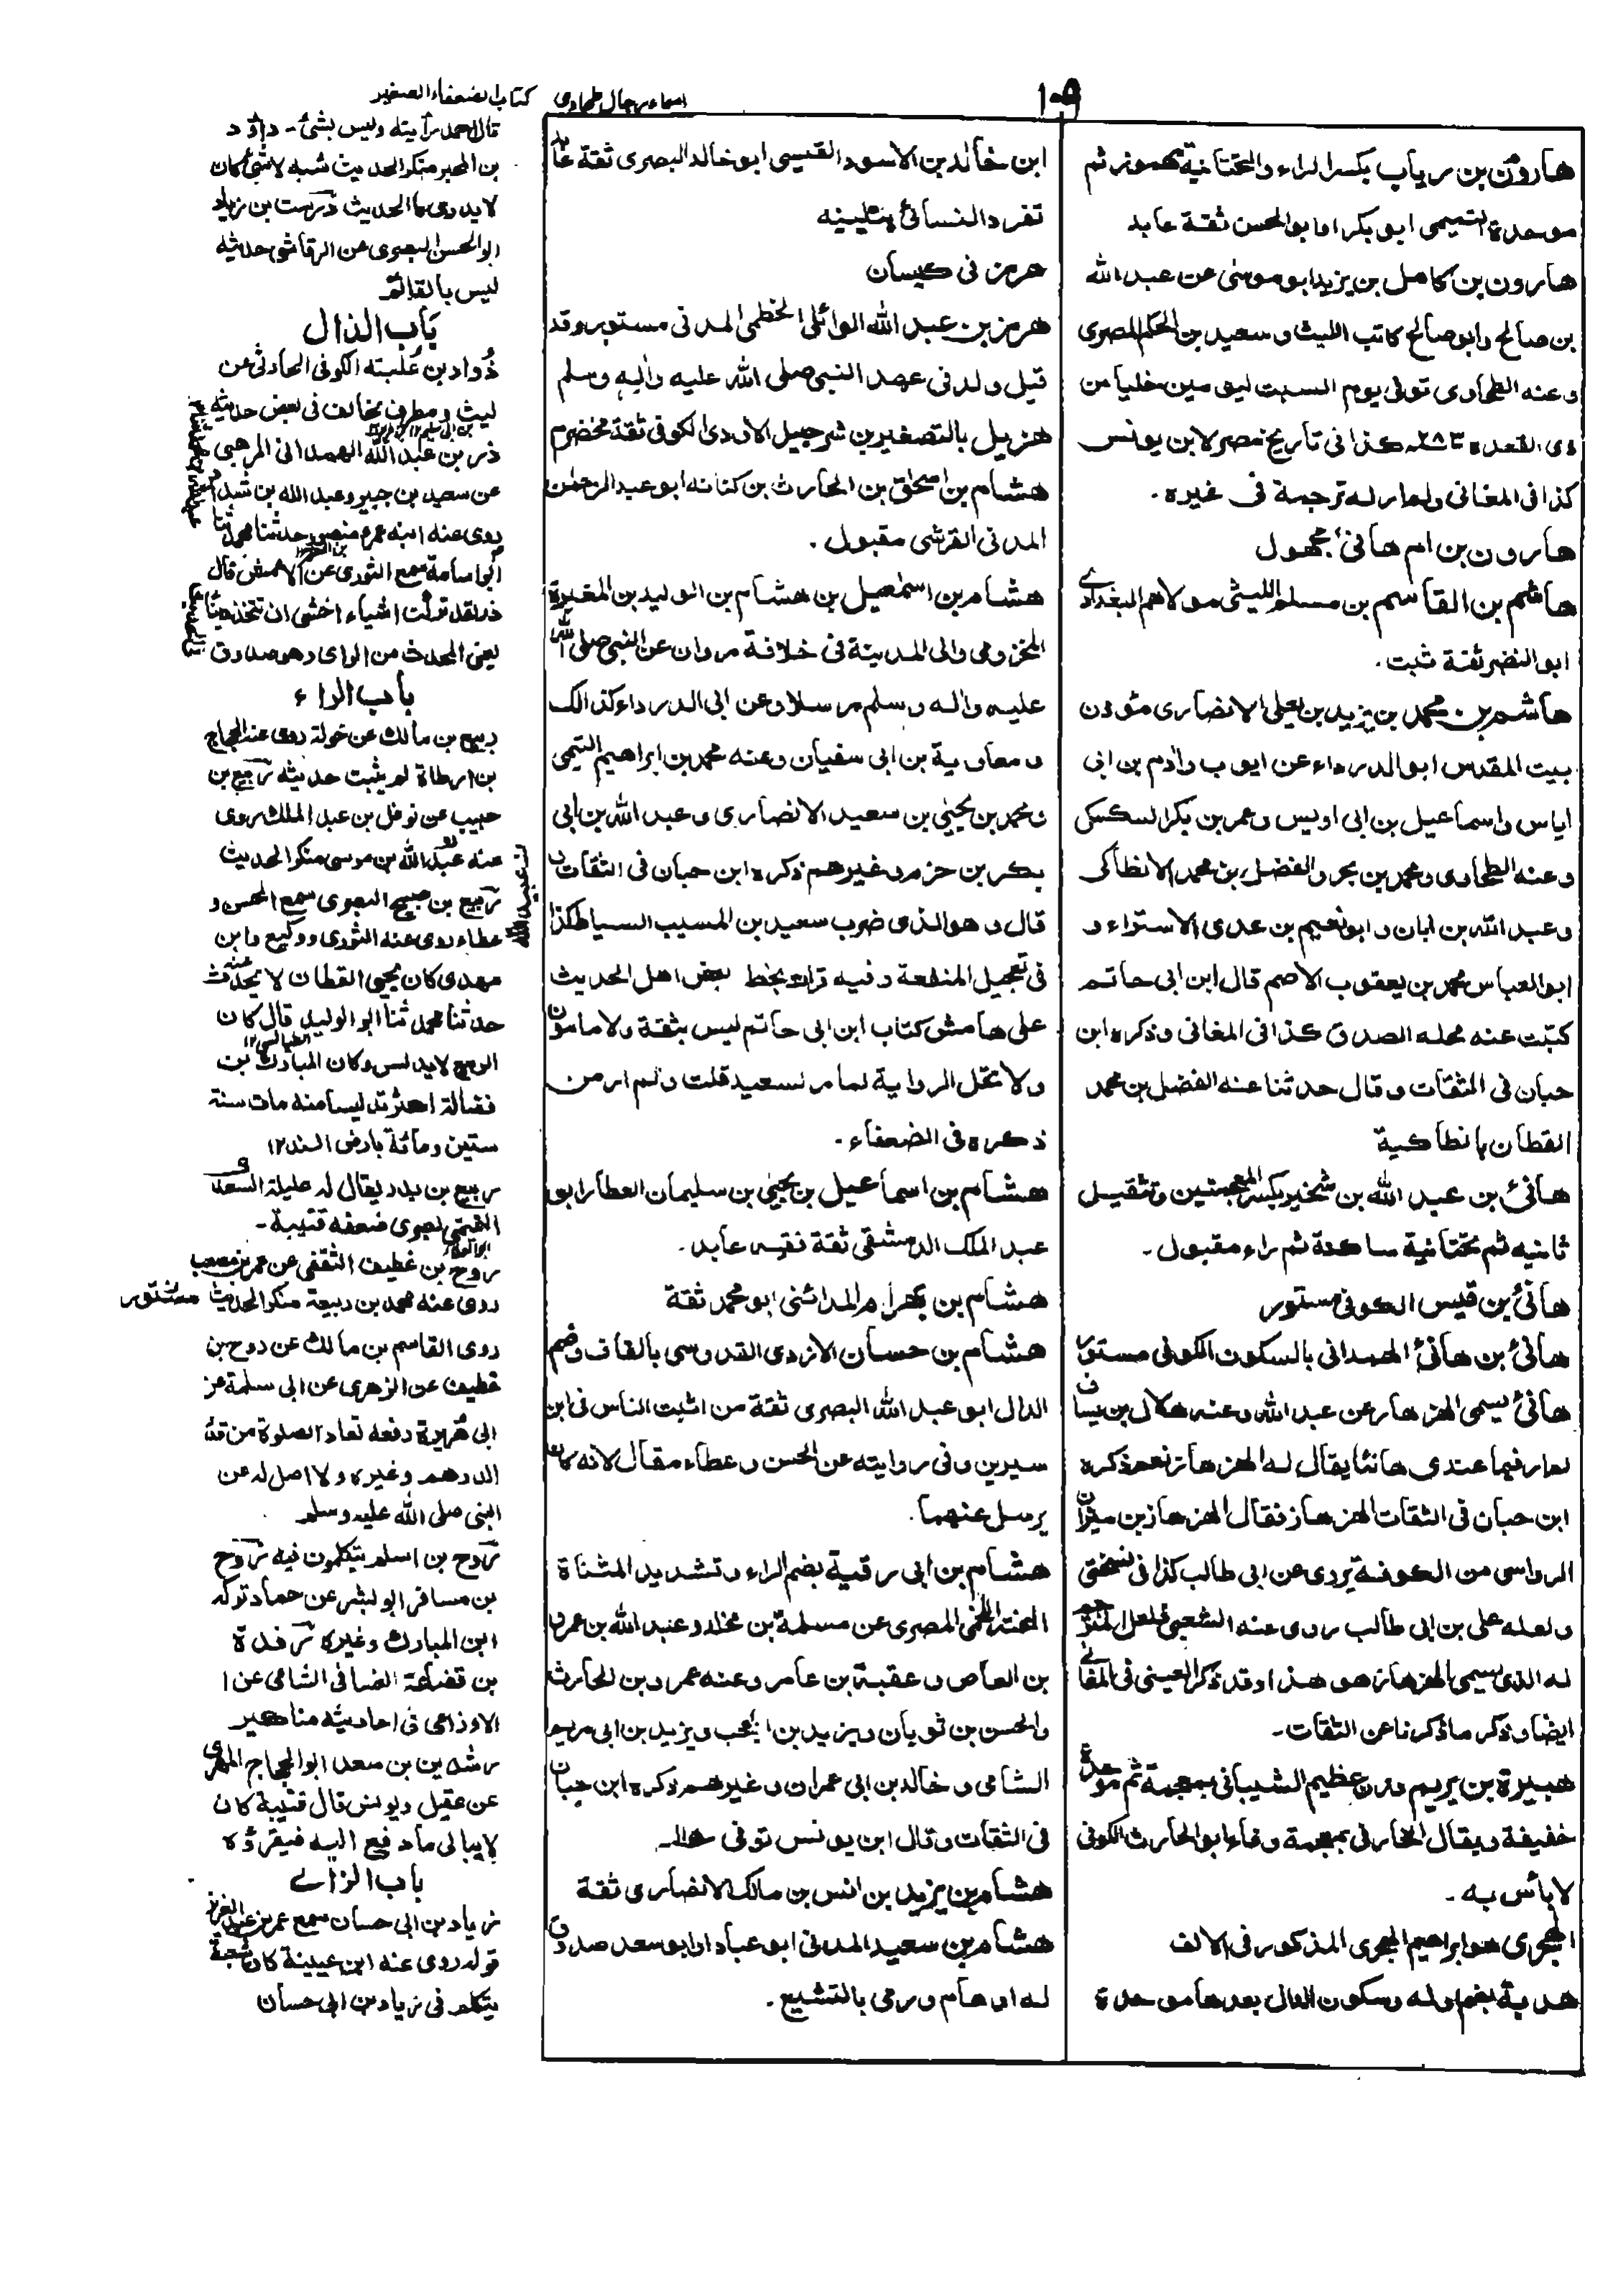 ١٠٩
اسماء رجال طحاوى
كتاب الضعفاء الصغير
هارون بن رياب بكسر الراء والتحتانية مهموز ثم
موحدة التميمى ابو بكر او ابو الحسن ثقة عابد
هارون بن كامل بن يزيد ابو موسى عن عبد الله
بن صالح وابو صالح كاتب الليث وسعيد بن الحكم المصرى
وعنه الطحاوى توفى يوم السبت ليومين خليا من
ذى القعدة ٢٨٣ كذا فى تاريخ مصر لابن يونس
كذا فى المغانى ولم ار له ترجمة فى غيره.
هارون بن ام هانئ مجهول
هاشم بن القاسم بن مسلم الليثى مولاهم البغدادى
ابو النضر ثقة ثبت.
هاشم بن محمد بن يزيد بن يعلى الانصارى مؤذن
بيت المقدس ابو الدرداء عن ايوب وادم بن ابى
اياس واسماعيل بن ابى اويس وعمر بن بكر السكسكى
وعنه الطحاوى ومحمد بن بحر والفضل بن محمد الانطاكى
وعبد الله بن ابان وابو نعيم بن عدى الاستراء و
ابو العباس محمد بن يعقوب الاصم قال ابن ابى حاتم
كتبت عنه محله الصدق كذا فى المغانى وذكره ابن
حبان فى الثقات وقال حدثنا عنه الفضل بن محمد
القطان بانطاكية
هانئ بن عبد الله بن شخير بكسر المعجمتين وتثقيل
ثانيه ثم تحتانية ساكنة ثم راء مقبول.
هانئ بن قيس الكوفى مستور
هانئ بن هانئ الهمدانى بالسكون الكوفى مستور
هانئ يسمى الهزهاز عن عبد الله وعنه هلال بن يساف
لم ار فيما عندى هانئا يقال له الهزهاز نعم ذكره
ابن حبان فى الثقات الهزهاز فقال الهزهاز بن ميزان
الرواسى من الكوفة يروى عن ابى طالب كذا فى نسختى
ولعله على بن ابى طالب روى عنه الشعبى فلعل
له الذى يسمى الهزهاز هو هذا وقد ذكر العينى فى المغانى
ايضا وذكر ما ذكرنا عن الثقات.
هبيرة بن يريم وزن عظيم الشيبانى بمعجمة ثم موحدة
خفيفة ويقال الخارفى بمعجمة وفاء ابو الحارث الكوفى
لا بأس به.
الهجرى هو ابراهيم الهجرى المذكور فى الالف
هدبة بضم اوله وسكون الدال بعدها موحدة
ابن خالد بن الاسود القيسى ابو خالد البصرى ثقة عابد
تفرد النسائى بتليينه
هرمز فى كيسان
هرمز بن عبد الله الوائلى الخطمى المدنى مستور وقد
قيل ولد فى عهد النبى صلى الله عليه واله وسلم
هزيل بالتصغير بن شرحبيل الاودى الكوفى ثقة مخضرم
هشام بن اسحق بن الحارث بن كنانة ابو عبد الرحمن
المدنى القرشى مقبول.
هشام بن اسمعيل بن هشام بن الوليد بن المغيرة
المخزومى والى المدينة فى خلافة مروان عن النبى صلى الله
عليه واله وسلم مرسلا وعن ابى الدرداء كذالك
ومعاوية بن ابى سفيان وعنه محمد بن ابراهيم التيمى
ومحمد بن يحيى بن سعيد الانصارى وعبد الله بن ابى
بكر بن حزم وغيرهم ذكره ابن حبان فى الثقات
قال وهو الذى ضرب سعيد بن المسيب السياط كذا
فى تعجيل المنفعة وفيه قرات بخط بعض اهل الحديث
على هامش كتاب ابن ابى حاتم ليس بثقة ولا مامون
ولا تحل الرواية لما مر لسعيد قلت ولم ار من
ذكره فى الضعفاء.
هشام بن اسماعيل بن يحيى بن سليمان العطار ابو
عبد الملك الدمشقى ثقة فقيه عابد.
هشام بن بهرام المدائنى ابو محمد ثقة
هشام بن حسان الازدى القدوسى بالقاف وضم
الدال ابو عبد الله البصرى ثقة من اثبت الناس فى ابن
سيرين وفى روايته عن الحسن وعطاء مقال لانه كان
يرسل عنهما.
هشام بن ابى رقية بضم الراء وتشديد المثناة
اللخمى المصرى عن مسلمة بن مخلد وعبد الله بن عمرو
بن العاص وعقبة بن عامر وعنه عمرو بن الحارث
والحسن بن ثوبان ويزيد بن ابى ويزيد بن ابى مريم
الشامى وخالد بن ابى عمران وغيرهم ذكره ابن حبان
فى الثقات وقال ابن يونس توفى
هشام بن يزيد بن انس بن مالك الانصارى ثقة
هشام بن سعيد المدنى ابو عباد او ابو سعد صدوق
له اوهام ورمى بالتشيع.
قال احمد رأيته وليس بشئ - داؤد
بن المحبر منكر الحديث شبه لا شئ كان
لا يدرى ما الحديث درست بن زياد
ابو الحسن البصرى عن الرقاشى حديثه
ليس بالقائم
باب الذال
ذواد بن علبته الكوفى الحارثى عن
ليث ومطرف يخالف فى بعض حديثه
ذر بن عبد الله الهمدانى المرهبى
عن سعيد بن جبير وعبد الله بن شداد
روى عنه ابنه عمر ومنصور حدثنا محمد ثنا
ابو اسامة سمع الثورى عن الاعمش قال
ذر لقد اشياء اخشى ان تتخذ دينا
يعنى المحدث من الراى وهو صدوق
باب الراء
ربيع بن مالك عن خولة روى عنه الحجاج
بن ارطاة لم يثبت حديثه ربيع بن
حبيب عن نوفل بن عبد الملك روى
عنه عبد الله بن موسى منكر الحديث
ربيع بن صبيح البصرى سمع الحسن و
عطاء روى عنه الثورى ووكيع وابن
مهدى كان يحيى القطان لا يحدث عنه
حدثنا محمد ثنا ابو الوليد قال كان
الربيع لا يدلس وكان المبارك بن
فضالة اكثر تدليسا منه مات سنة
ستين ومائة بارض السند ١٢
ربيع بن بدر يقال له عليلة السعدى
التميمى بصرى ضعفه قتيبة -
روح بن غطيف الثقفى عن عمر بن مصعب
روى عنه محمد بن ربيعة منكر الحديث
روى القاسم بن مالك عن روح بن
غطيف عن الزهرى عن ابى سلمة عن
ابى هريرة رفعه تعاد الصلوة من قدر
الدرهم وغيره ولا اصل له عن
النبى صلى الله عليه وسلم
روح بن اسلم يتكلمون فيه روح
بن مسافر ابو بشر عن حماد تركه
ابن المبارك وغيره رفدة
بن قضاعة الغسانى الشامى عن ا
الاوزاعى فى احاديثه مناكير
رشدين بن سعد ابو الحجاج المهرى
عن عقيل ويونس قال قتيبة كان
لا يبالى ما دفع اليه فيقرؤه
باب الزاے
زياد بن ابى حسان سمع عمر بن عبد العزيز
قوله روى عنه ابن عيينة كان شعبة
يتكلم فى زياد بن ابى حسان